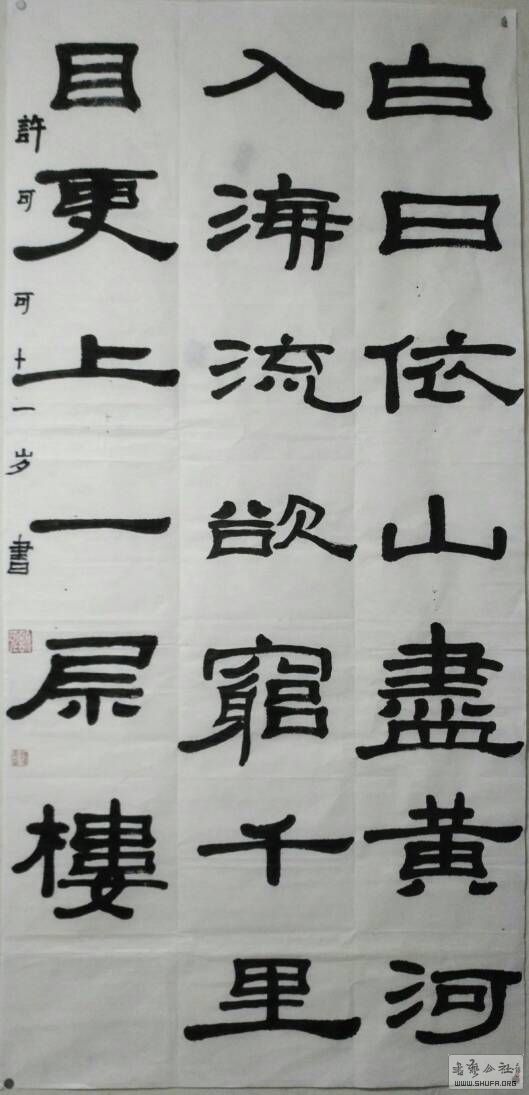 白日依山盡黃河
入海流欲窮千里
目更上一层樓
許可可十一岁書
書藝公社
WWW.SHUFA.ORG